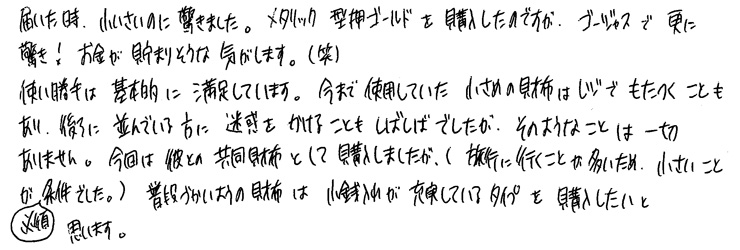 届いた時、小いさいのに驚きました。メタリック型押ゴールドを購入したのですが、ゴージャスで更に
驚き！お金が貯まりそうな気がします。(笑)
使い勝手は基本的に満足しています。今まで使用していた小さめの財布はレジでもたつくことも
あり、後ろに並んでいる方に迷惑をかけることもしばしばでしたが、そのようなことは一切
ありません。今回は彼との共同財布として購入しましたが、(旅行に行くことが多いため、小さいこと
が必須条件でした。)普段づかいようの財布は小銭入れが充実しているタイプを購入したいと
思います。